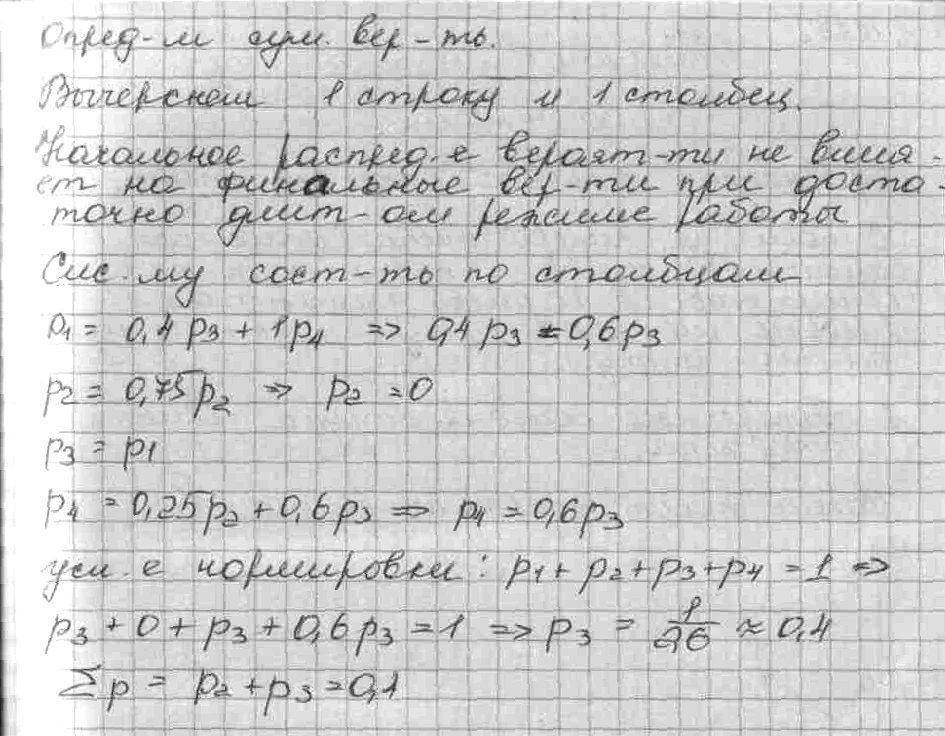 Опред-м сум. вер-ть.
Вычеркнем 1 строку и 1 столбец.
Начальное распред-е вероят-ти не влия-
ет на финальные вер-ти при доста-
точно длит-ом режиме работы
Сис-му сост-ть по столбцам
p1 = 0,4p3 + 1p4 => 0,4p3 = 0,6p3
p2 = 0,75p2 => p2 = 0
p3 = p1
p4 = 0,25p2 + 0,6p3 => p4 = 0,6p3
усл-е нормировки: p1 + p2 + p3 + p4 = 1 =>
p3 + 0 + p3 + 0,6p3 = 1 => p3 = 1/2,6 ≈ 0,4
Σp = p2 + p3 = 0,1